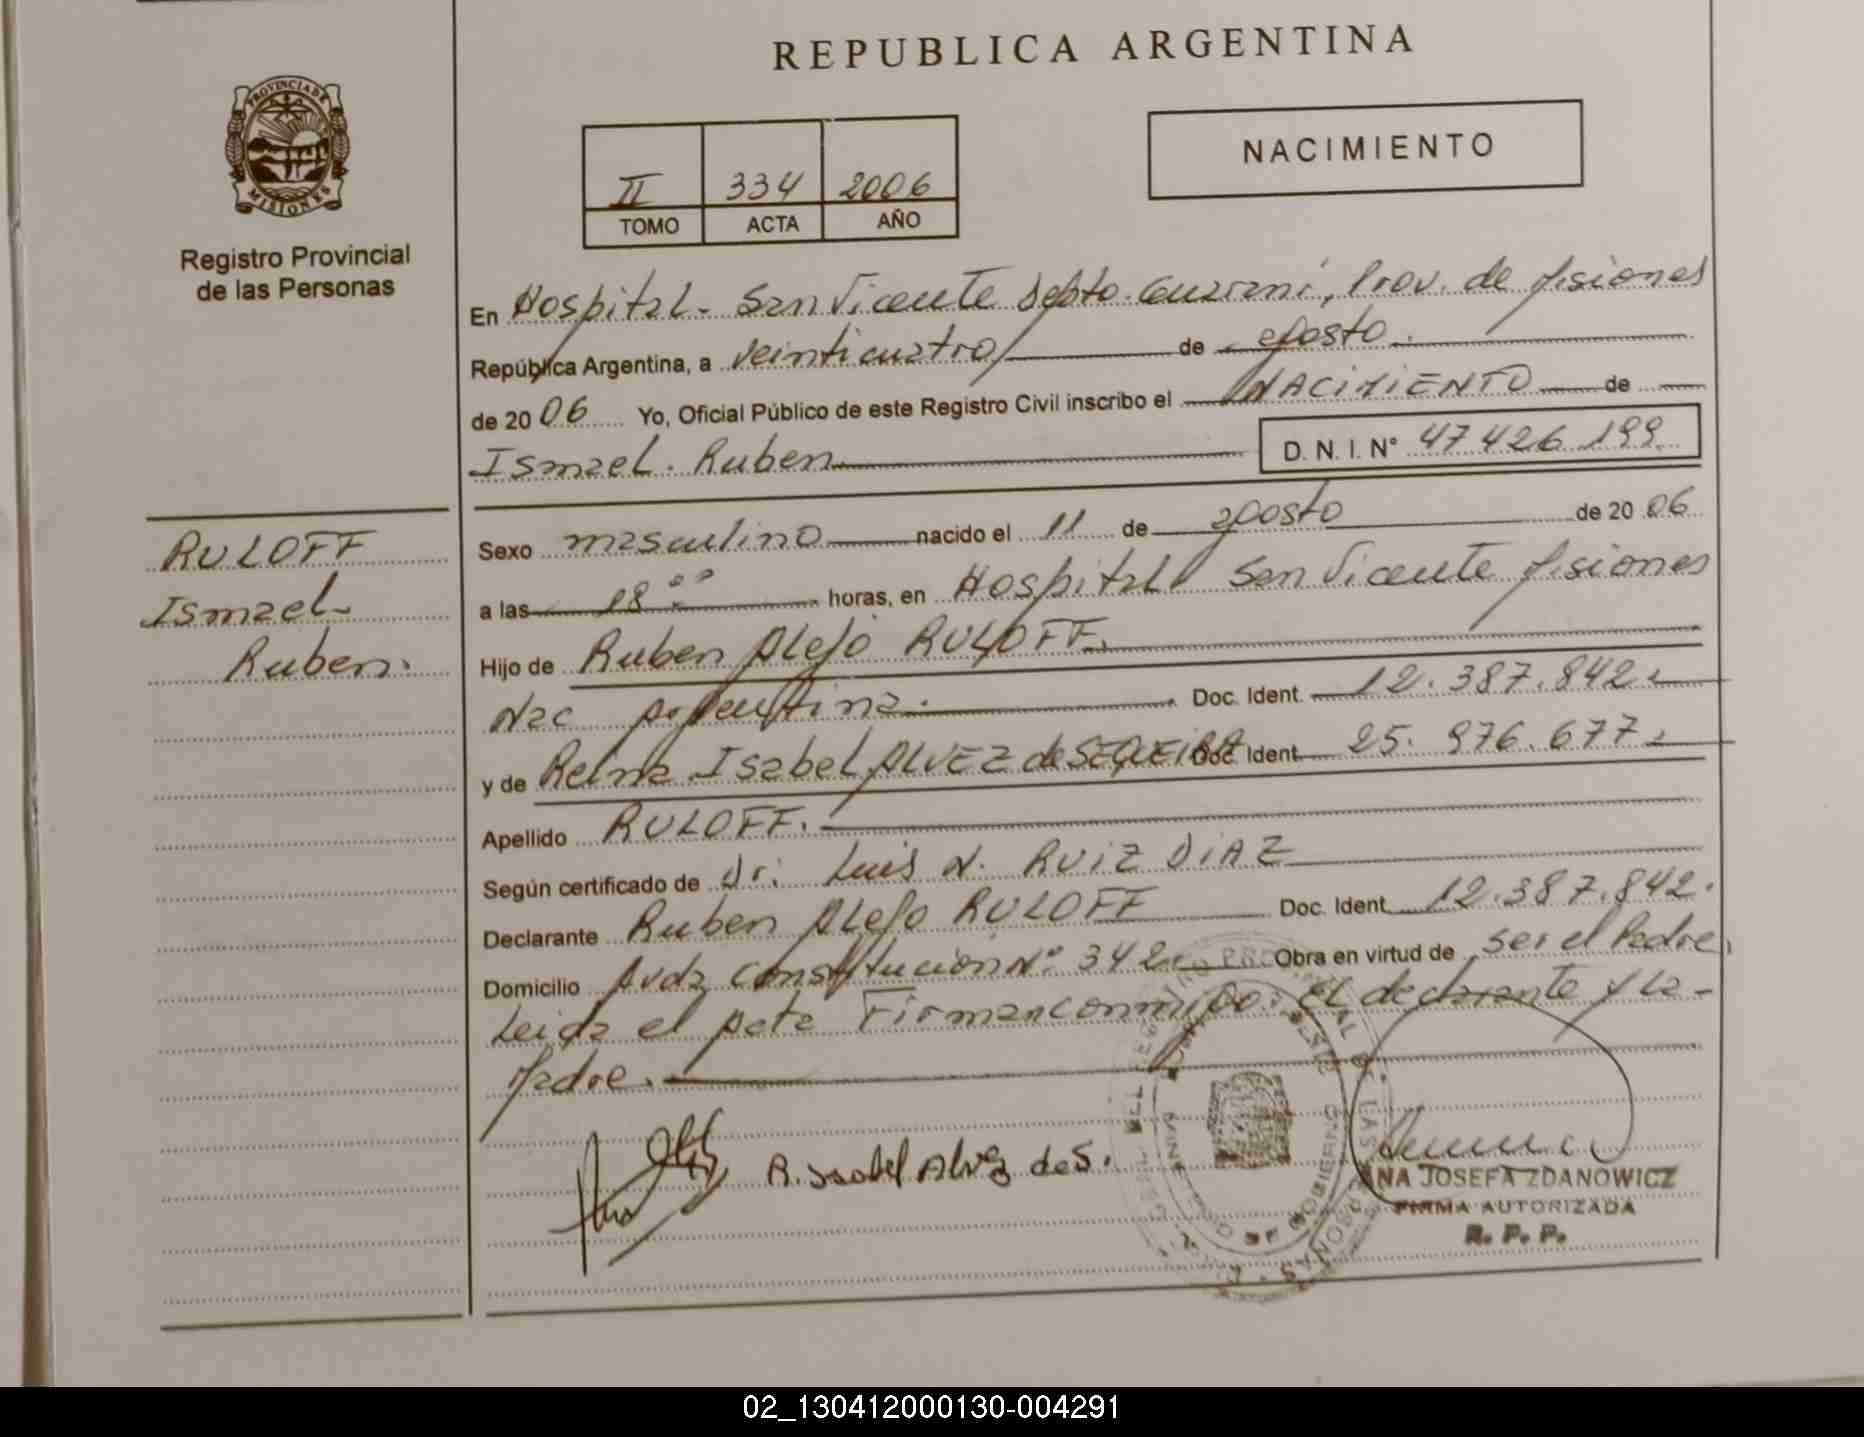 REPUBLICA ARGENTINA
PROVINCIA DE
MISIONES
Registro Provincial
de las Personas
II 334 2006
TOMO ACTA AÑO
NACIMIENTO
En Hospital - San Vicente Depto. Guarani, Prov. de Misiones
República Argentina, a veinticuatro de agosto.
de 2006 Yo, Oficial Público de este Registro Civil inscribo el NACIMIENTO de
Ismael Ruben D. N. I. N° 47426199
RULOFF
Ismael
Ruben.
Sexo masculino nacido el 11 de agosto de 2006
a las 18 00 horas, en Hospital San Vicente Misiones
Hijo de Ruben Alejo RULOFF.
Nac Argentina. Doc. Ident. 12.387.842
y de Reina Isabel ALVEZ de SEQUEIRA Doc. Ident. 25.976.677
Apellido RULOFF.
Según certificado de Dr. Luis N. RUIZ DIAZ
Declarante Ruben Alejo RULOFF Doc. Ident. 12.387.842.
Domicilio Avda Constitución N° 342 Obra en virtud de ser el Padre,
Leida el Acta Firman conmigo: El declarante y la -
Madre.
R. Isabel Alvez de S.
ANA JOSEFA ZDANOWICZ
FIRMA AUTORIZADA
R. P. P.
02_130412000130-004291